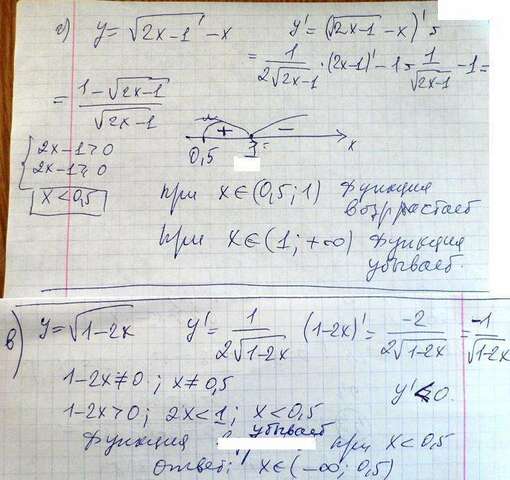 с) y = √(2x-1) - x   y' = (√(2x-1) - x)' =
= 1/(2√(2x-1)) · (2x-1)' - 1 = 1/√(2x-1) - 1 =
= (1-√(2x-1))/√(2x-1)
+ −
0,5 1 x
{ 2x-1≥0
2x-1≠0
x<0,5
при x∈(0,5;1) функция
возррастает
при x∈(1;+∞) функция
убывает.
в) y=√(1-2x)   y' = 1/(2√(1-2x)) (1-2x)' = -2/(2√(1-2x)) = -1/√(1-2x)
1-2x≠0; x≠0,5   y'<0.
1-2x>0; 2x<1; x<0,5
функция убывает при x<0,5
ответ: x∈(-∞; 0,5)